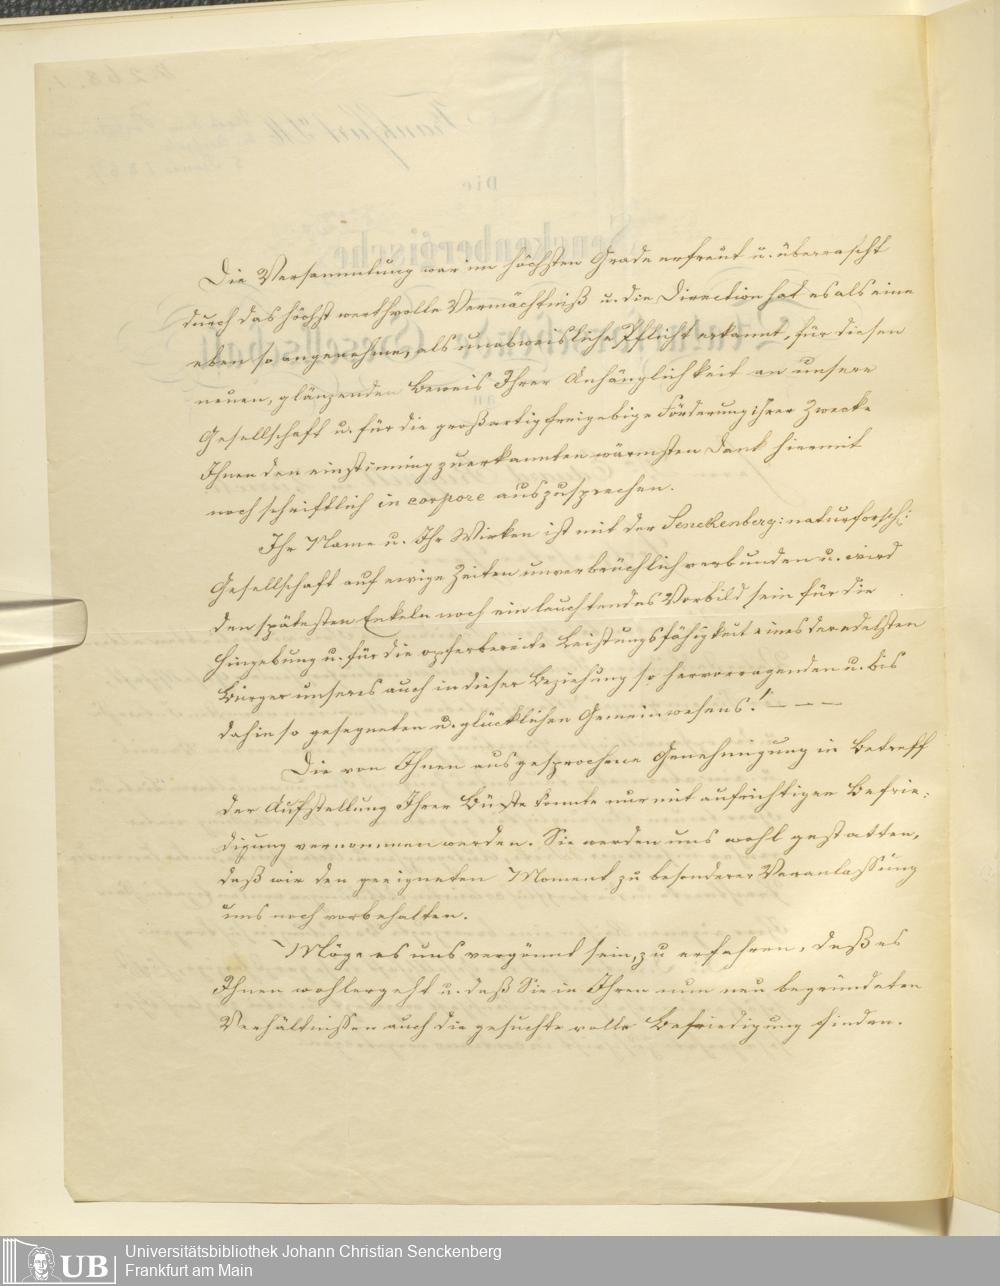 Die Versammlung war im höchsten Grade erfreut u. überrascht
durch das höchst werthvolle Vermächtniß u. die Direction hat es als eine
eben so angenehme, als unabweisliche Pflicht erkannt, für diesen
neuen, glänzenden Beweis Ihrer Anhänglichkeit an unsere
Gesellschaft u. für die großartig freigebige Förderung ihrer Zwecke
Ihnen den einstimmig zuerkannten wärmsten Dank hiermit
noch schriftlich in corpore auszusprechen.
Ihr Name u. Ihr Wirken ist mit der Senckenberg: naturforsch:
Gesellschaft auf ewige Zeiten unverbrüchlich verbunden u. wird
den spätesten Enkeln noch ein leuchtendes Vorbild sein für die
Hingebung u. für die opferbereite Leistungsfähigkeit eines der edelsten
Bürger unseres auch in dieser Beziehung so hervorragenden u. bis
dahin so gesegneten u. glücklichen Gemeinwesens! — — —
Die von Ihnen ausgesprochene Genehmigung in Betreff
der Aufstellung Ihrer Büste konnte nur mit aufrichtiger Befrie-
digung vernommen werden. Sie werden uns wohl gestatten,
daß wir den geeigneten Moment zu besonderer Veranlassung
uns noch vorbehalten.
Möge es uns vergönnt sein, zu erfahren, daß es
Ihnen wohlergeht u. daß Sie in Ihren nun neu begründeten
Verhältnissen auch die gesuchte volle Befriedigung finden.
UB
Universitätsbibliothek Johann Christian Senckenberg
Frankfurt am Main